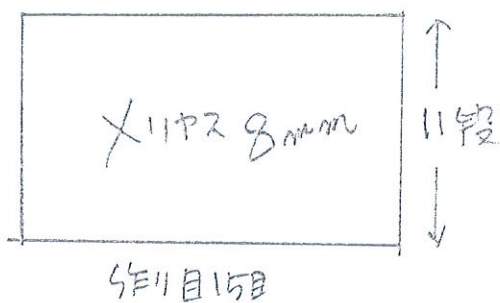 メリヤス 8mm
11段
作り目15目